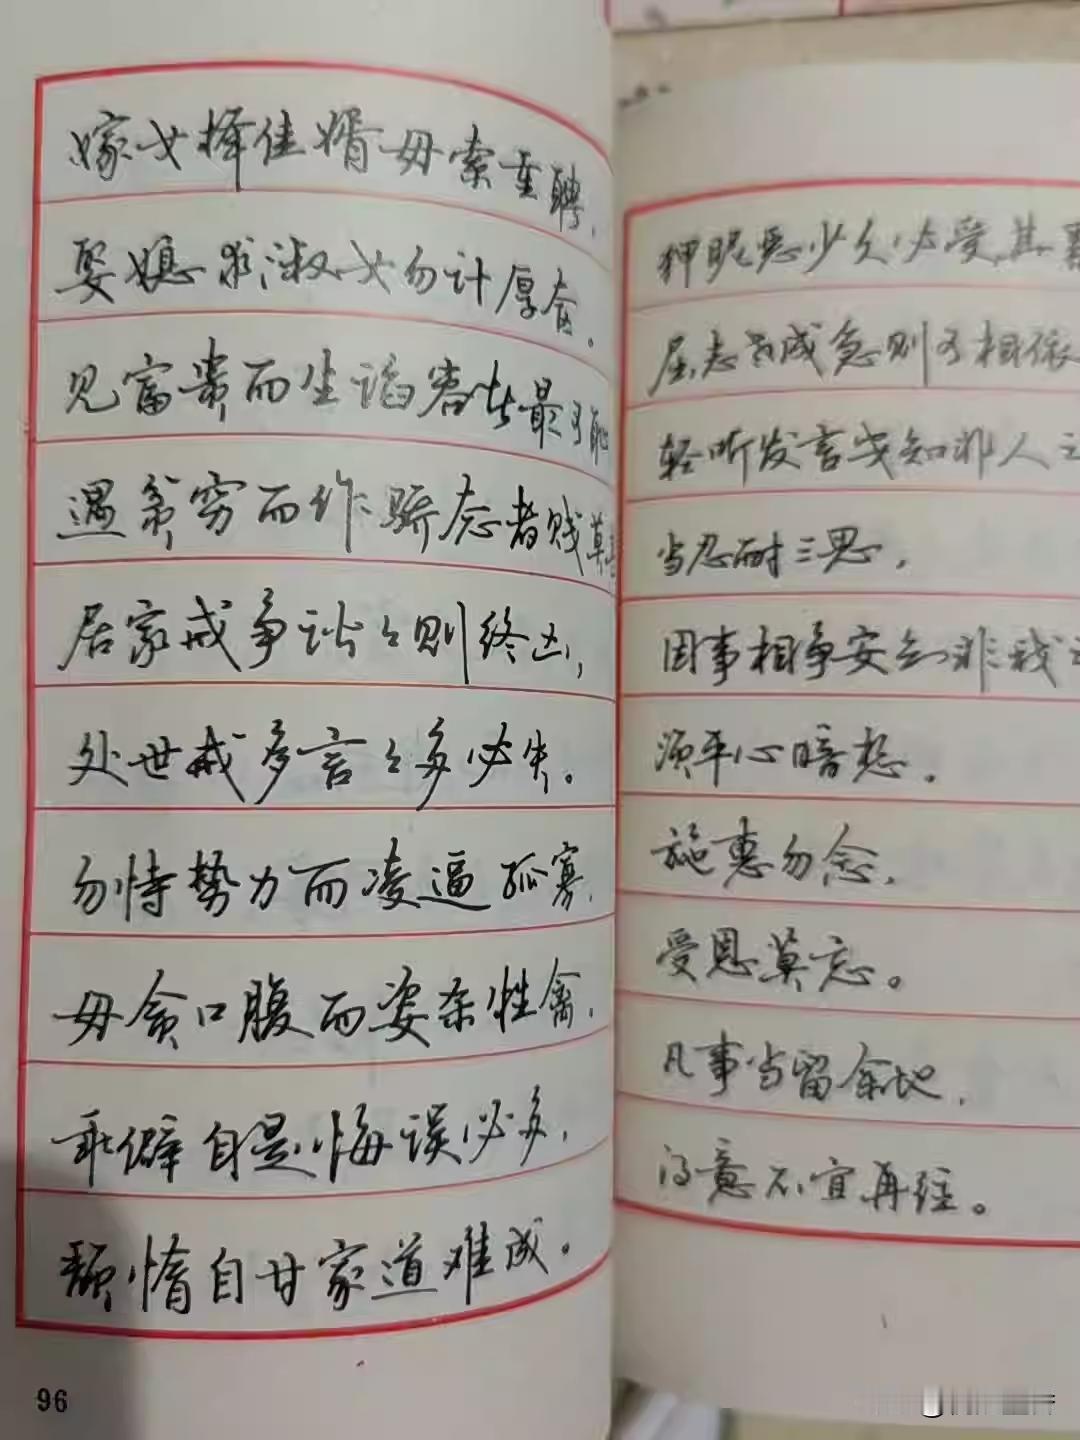 嫁女择佳婿毋索重聘，
娶媳求淑女勿计厚奁。
见富贵而生谄容者最可耻
遇贫穷而作骄态者贱莫
居家戒争讼々则终凶，
处世戒多言々多必失。
勿恃势力而凌逼孤寡，
毋贪口腹而恣杀牲禽，
乖僻自是悔误必多，
颓惰自甘家道难成。
96
狎昵恶少久必受其
屈志老成急则可相依
轻听发言安知非人之
当忍耐三思，
因事相争安知非我之
须平心暗想。
施惠勿念，
受恩莫忘。
凡事当留余地，
得意不宜再往。